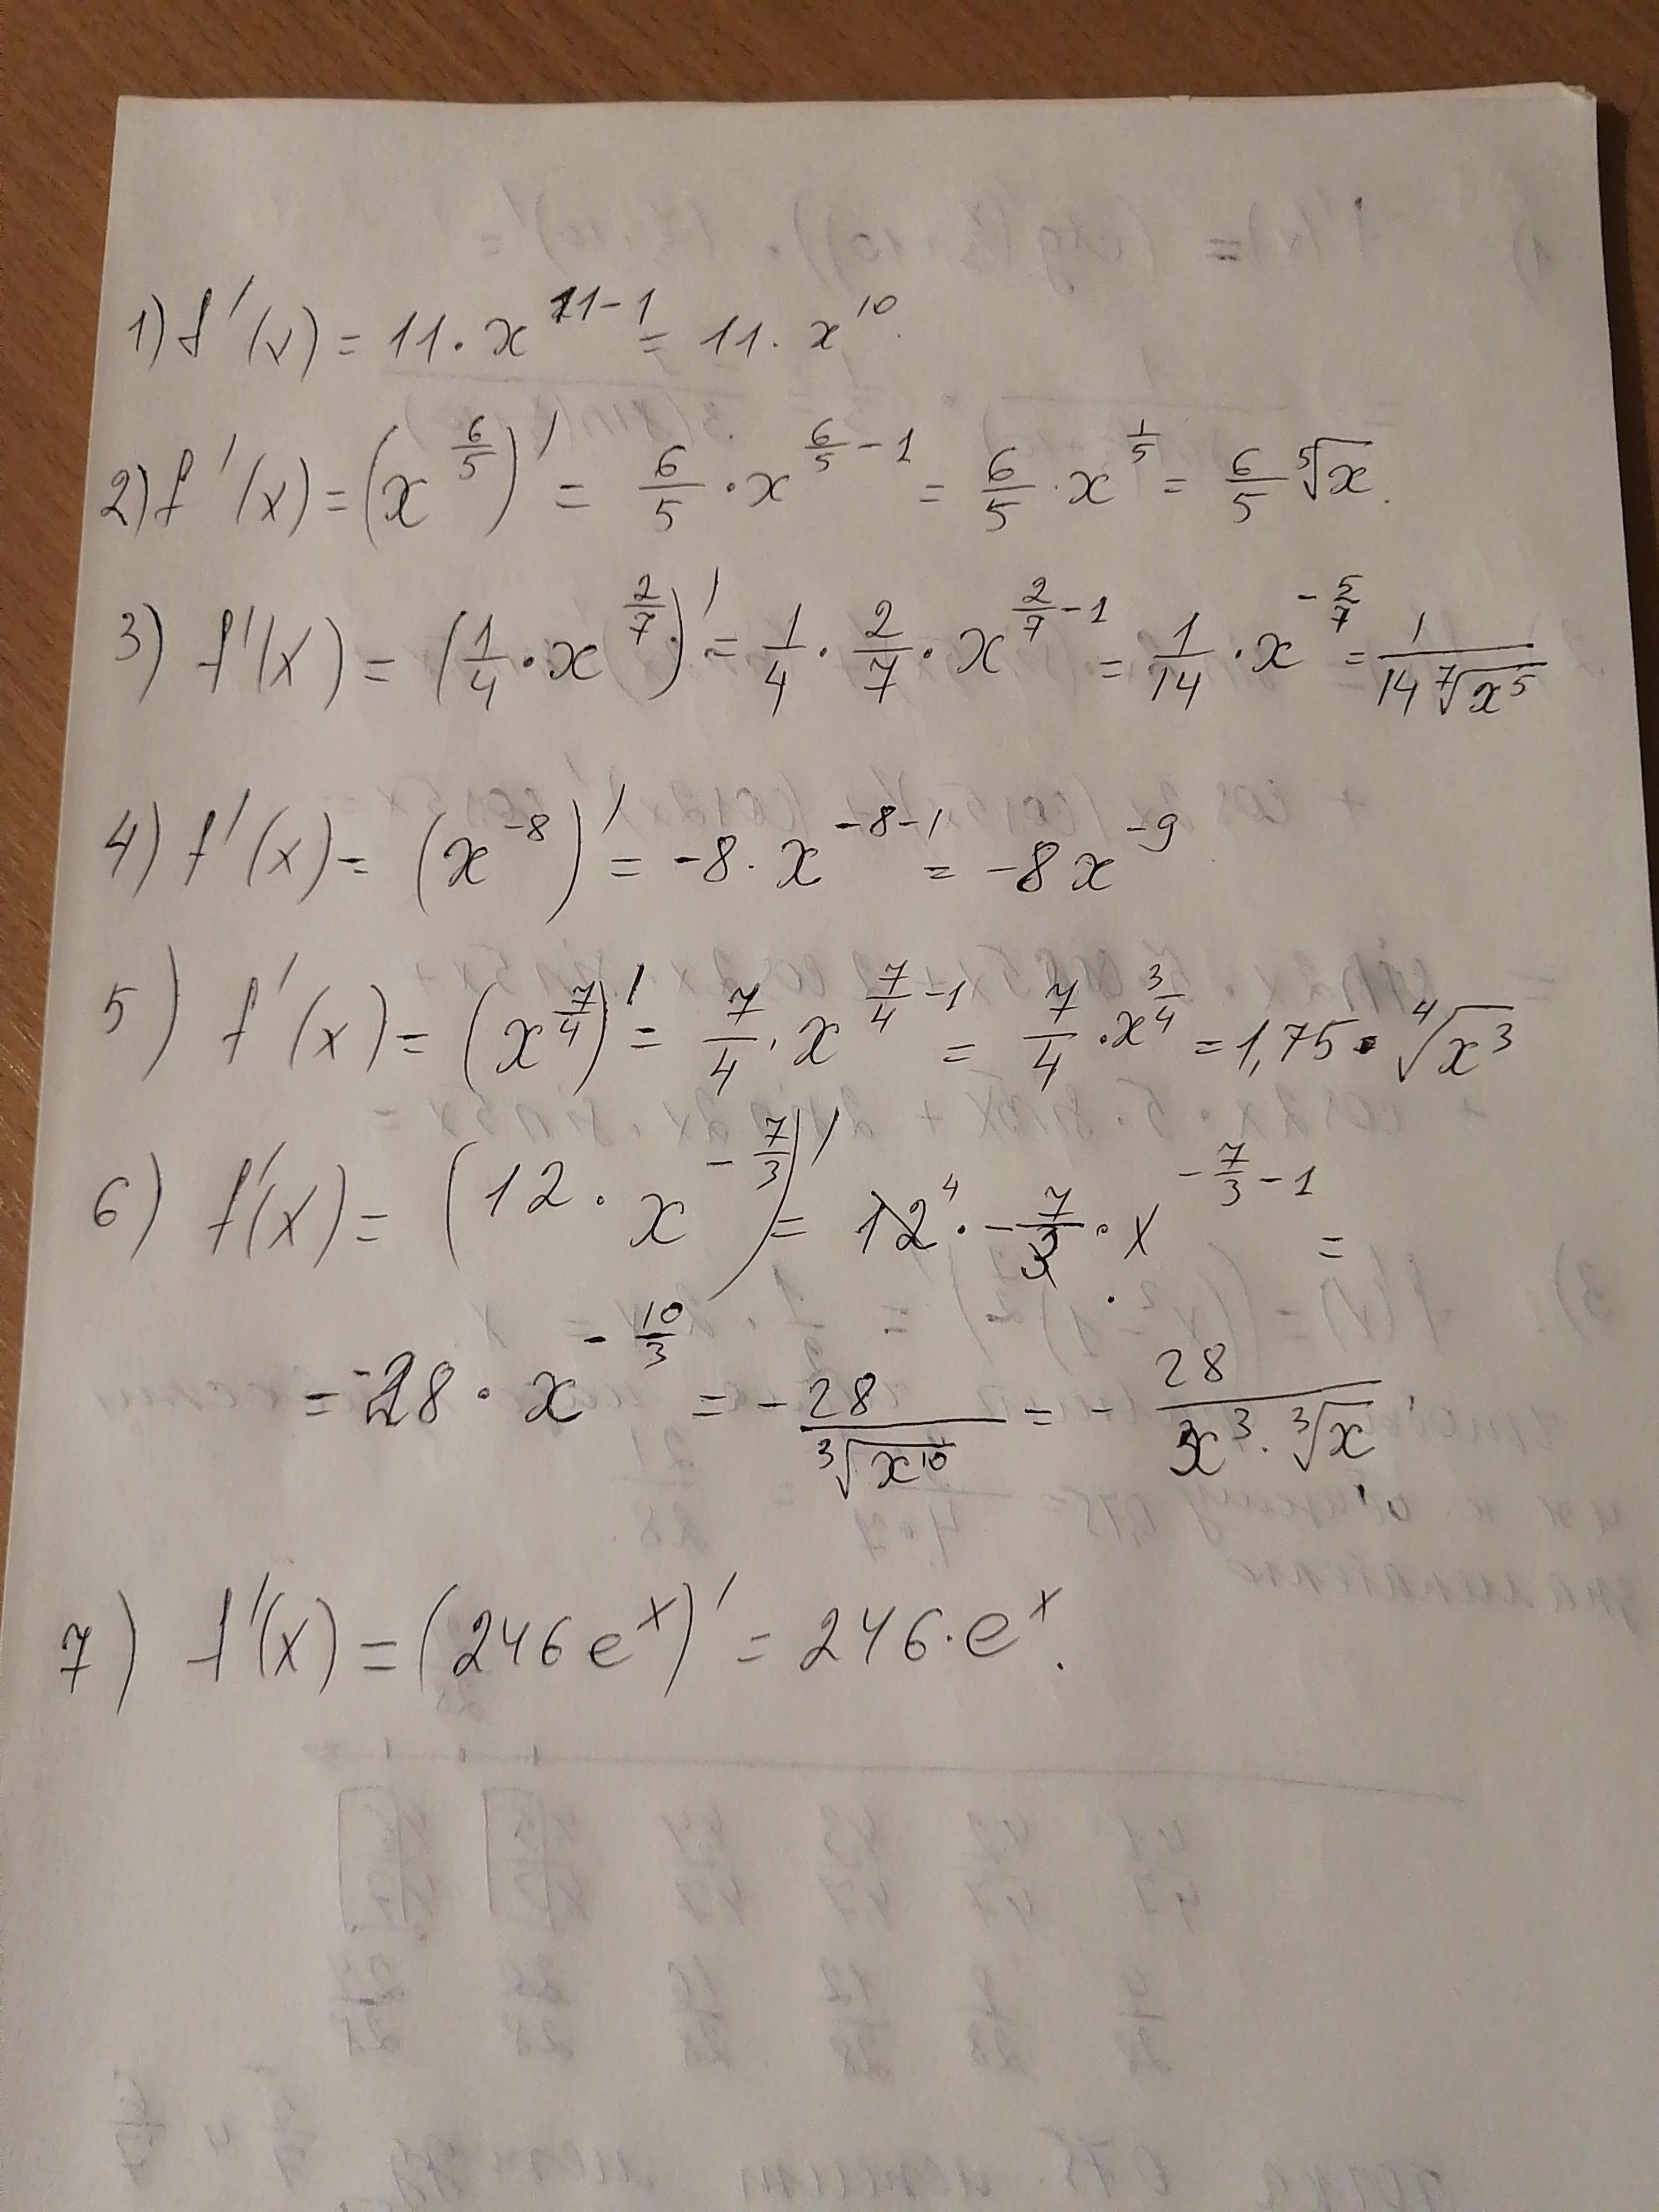 1) f'(x) = 11 · x^(11-1) = 11 · x^10.
2) f'(x) = (x^(6/5))' = 6/5 · x^(6/5 - 1) = 6/5 · x^(1/5) = 6/5 ⁵√x.
3) f'(x) = (1/4 · x^(2/7))' = 1/4 · 2/7 · x^(2/7 - 1) = 1/14 · x^(-5/7) = 1/(14 ⁷√(x^5))
4) f'(x) = (x^(-8))' = -8 · x^(-8-1) = -8x^(-9)
5) f'(x) = (x^(7/4))' = 7/4 · x^(7/4 - 1) = 7/4 · x^(3/4) = 1,75 · ⁴√(x^3)
6) f'(x) = (12 · x^(-7/3))' = 12 ⁴ · -7/3 · x^(-7/3 - 1) =
= -28 · x^(-10/3) = -28/(³√(x^10)) = -28/(x^3 · ³√x)
7) f'(x) = (246e^x)' = 246 · e^x.